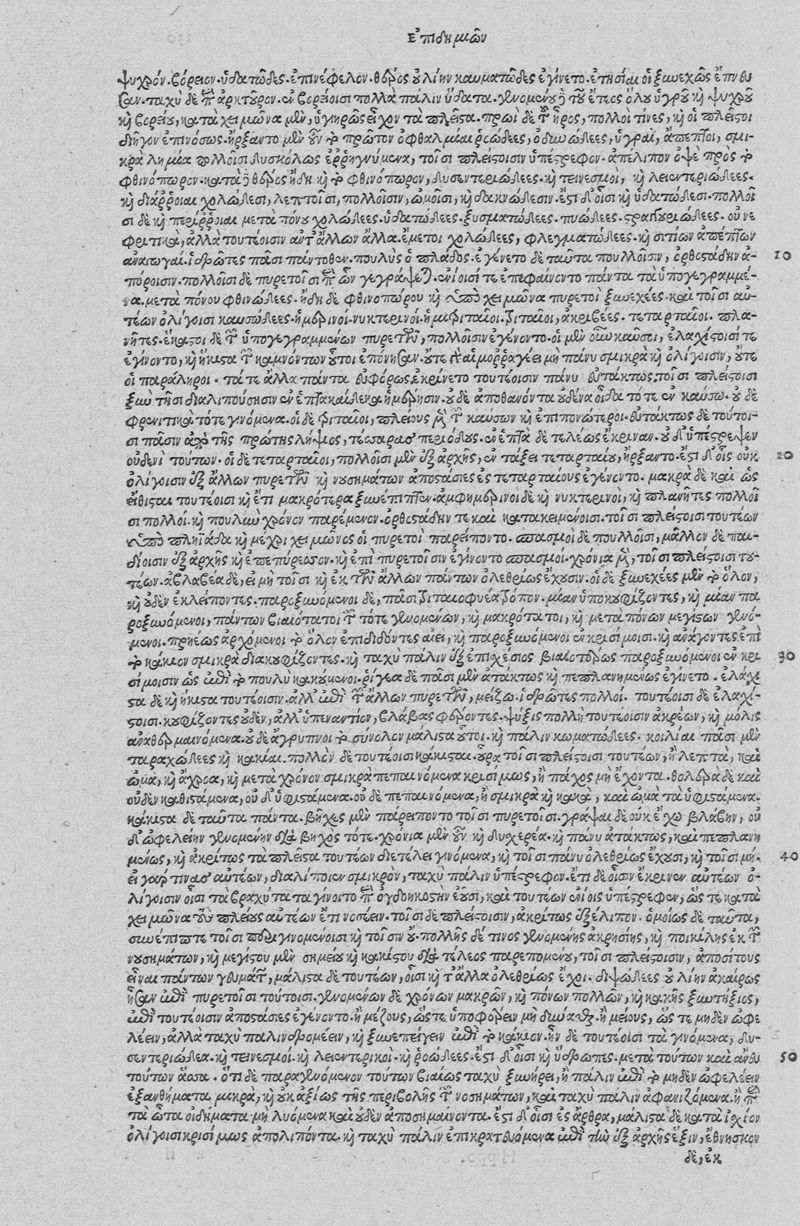 Ἐπιδημιῶν
ψυχρόν. βόρειον. ὑδατῶδες. ἐπινέφελον. θέρος οὐ λίην καυματῶδες ἐγίνετο. ἐτησίαι οἱ ξυνεχῶς ἔπνευ
σαν. ταχὺ δὲ περὶ ἀρκτοῦρον. ἐν βορείοισι πολλὰ πάλιν ὕδατα. γενομένου δὲ τοῦ ἔτεος ὅλου ὑγροῦ καὶ ψυχροῦ
καὶ βορείου, κατὰ χειμῶνα μὲν, ὑγιηρῶς εἶχον τὰ πλεῖστα. πρωὶ δὲ τοῦ ἦρος, πολλοί τινες, καὶ οἱ πλεῖστοι
διῆγον ἐπινόσως. ἤρξαντο μὲν οὖν τὸ πρῶτον ὀφθαλμίαι ῥοώδεες, ὀδυνώδεες, ὑγραὶ, ἄπεπτοι, σμι-
κρὰ λημία πολλοῖσι δυσκόλως ἐρρηγνύμενα, τοῖσι πλείστοισιν ὑπέστρεφον. ἀπέλιπον ὀψὲ πρὸς τὸ
φθινόπωρον. κατὰ δὲ θέρος ἤδη καὶ τὸ φθινόπωρον, δυσεντεριώδεες. καὶ τεινεσμοὶ, καὶ λειεντεριώδεες.
καὶ διάρροιαι χολώδεσι, λεπτοῖσι, πολλοῖσιν, ὠμοῖσι, καὶ δακνώδεσιν. ἔστι δ' οἷσι καὶ ὑδατώδεσι. πολλοῖ
σι δὲ καὶ περίρροιαι μετὰ πόνου χολώδεες. ὑδατώδεες. ξυσματώδεες. πυώδεες. στραγγουριώδεες. οὐ νε
φριτικὰ, ἀλλὰ τουτέοισιν ἀντ' ἄλλων ἄλλα. ἔμετοι χολώδεες, φλεγματώδεες. καὶ σιτίων ἀπέπτων
ἀναγωγαί. ἱδρῶτες πᾶσι πάντοθεν. πουλὺς ὁ πλάδος. ἐγένετο δὲ ταῦτα πουλλοῖσιν, ὀρθοστάδην ἀ-
πύροισιν. πολλοῖσι δὲ πυρετοῖσι περὶ ὧν γεγράψεται. ἐνίοισί τε ἐπεφαίνοντο πάντα τὰ ὑπογεγραμμέ-
να. μετὰ πόνου φθινώδεες. ἤδη δὲ φθινοπώρου καὶ ὑπὸ χειμῶνα πυρετοὶ ξυνεχέες. καὶ τοῖσι αὐ-
τέων ὀλίγοισι καυσώδεες. ἡμερινοὶ. νυκτερινοὶ. ἡμιτριταῖοι. τριταῖοι, ἀκριβέες. τεταρταῖοι. πλα-
νῆτες. ἕκαστοι δὲ τῶν ὑπογεγραμμένων πυρετῶν, πολλοῖσιν ἐγένοντο. οἱ μὲν οὖν καῦσοι, ἐλαχίστοισί τε
ἐγένοντο, καὶ ἥκιστα τῶν καμνόντων οὗτοι ἐπόνησαν. οὔτε γὰρ αἱμορράγεει μὴ πάνυ σμικρὰ καὶ ὀλίγοισιν, οὔτε
οἱ παράληροι. τά τε ἄλλα πάντα εὐφόρως. ἐκρίνετο τουτέοισιν πάνυ εὐτάκτως. τοῖσι πλείστοισι
ξὺν τῇσι διαλιπούσησιν ἐν ἑπτακαίδεκα ἡμέρῃσιν. οὐδὲ ἀποθανόντα οὐδένα οἶδα τότε ἐν καύσῳ. οὐδὲ
φρενιτικὰ τότε γινόμενα. οἱ δὲ τριταῖοι, πλείους μὲν τῶν καύσων καὶ ἐπιπονώτεροι. εὐτάκτως δὲ τούτοι-
σι πᾶσιν ἀπὸ τῆς πρώτης λήψιος, τέσσαρας περιόδους. ἐν ἑπτὰ δὲ τελέως ἔκριναν. οὐδ' ὑπέστρεψεν
οὐδενὶ τούτων. οἱ δὲ τεταρταῖοι, πολλοῖσι μὲν ἐξ ἀρχῆς, ἐν τάξει τεταρταίου, ἤρξαντο. ἔστι δ' οἷς οὐκ
ὀλίγοισιν ἐξ ἄλλων πυρετῶν καὶ νουσημάτων ἀποστάσιες ἐς τεταρταίους ἐγένοντο. μακρὰ δὲ καὶ ὡς
εἴθισται τουτέοισι καὶ ἔτι μακρότερα ξυνέπιπτον. ἀμφημερινοὶ δὲ καὶ νυκτερινοὶ, καὶ πλανῆτες πολλοῖ
σι πολλοὶ. καὶ πουλὺν χρόνον παρέμενον. ὀρθοστάδην τε καὶ κατακειμένοισι. τοῖσι πλείστοισι τουτέων
ὑπὸ πληϊάδα καὶ μέχρι χειμῶνος οἱ πυρετοὶ παρείποντο. σπασμοὶ δὲ πουλλοῖσι, μᾶλλον δὲ παι-
δίοισιν ἐξ ἀρχῆς καὶ ἐπεπύρεσσον. καὶ ἐπὶ πυρετοῖσιν ἐγίνοντο σπασμοί. χρόνια μὲν, τοῖσι πλείστοισι του-
τέων. ἀβλαβέα δὲ, εἰ μὴ τοῖσι καὶ ἐκ τῶν ἄλλων πάντων ὀλεθρίως ἔχουσιν. οἱ δὲ ξυνεχέες μὲν τὸ ὅλον,
καὶ οὐδὲν ἐκλείποντες. παροξυνόμενοι δὲ, πᾶσι τριταιοφυέα τρόπον. μίαν ὑποκουφίζοντες, καὶ μίαν πα
ροξυνόμενοι, πάντων βιαιότατοι τῶν τότε γενομένων, καὶ μακρότατοι, καὶ μετὰ πόνων μεγίστων γενό-
μενοι. πρηέως ἀρχόμενοι τὸ ὅλον ἐπιδιδόντες αἰεὶ, καὶ παροξυνόμενοι ἐν κρισίμοισι. καὶ ἀνάγοντες ἐπὶ
τὸ κάκιον σμικρὰ διακουφίζοντες. καὶ ταχὺ πάλιν ἐξ ἐπισχέσιος βιαιοτέρως παροξυνόμενοι ἐν κρι
σίμοισιν ὡς ἐπὶ τὸ πουλὺ κακούμενοι. ῥίγεα δὲ πᾶσι μὲν ἀτάκτως καὶ πεπλανημένως ἐγίνετο. ἐλάχι
στα δὲ καὶ ἥκιστα τουτέοισιν. ἀλλ' ἐπὶ τῶν ἄλλων πυρετῶν, μείζω. ἱδρῶτες πολλοί. τουτέοισι δὲ ἐλαχί-
στοισι. κουφίζοντες οὐδὲν, ἀλλ' ὑπεναντίον, βλάβας φέροντες. ψύξις πολλὴ τουτέοισιν ἀκρέων, καὶ μόλις
ἀναθερμαινόμενα. οὐδὲ ἄγρυπνοι τὸ σύνολον μάλιστα οὗτοι. καὶ πάλιν κωματώδεες. κοιλίαι πᾶσι μὲν
ταραχώδεες καὶ κακίαι. πολλὸν δὲ τουτέοισι κάκισται. οὖρα τοῖσι πλείστοισι τουτέων, ἢ λεπτὰ, καὶ
ὠμὰ, καὶ ἄχροα, καὶ μετὰ χρόνον σμικρὰ πεπαινόμενα κρισίμως, ἢ πάχος μὴ ἔχοντα. θολερὰ δὲ καὶ
οὐδὲν καθιστάμενα, οὐδ' ὑφιστάμενα. οὐδὲ πεπαινόμενα, ἢ σμικρὰ καὶ κακὰ, καὶ ὠμὰ τὰ ὑφιστάμενα.
κάκιστα δὲ ταῦτα πάντα. βῆχες μὲν παρείποντο τοῖσι πυρετοῖσι. γράψαι δὲ οὐκ ἔχω βλάβην, οὐ
δ' ὠφελείην γενομένην διὰ βηχὸς τότε. χρόνια μὲν οὖν καὶ δυσχερέα. καὶ πάνυ ἀτάκτως, καὶ πεπλανη
μένως, καὶ ἀκρίτως τὰ πλεῖστα τουτέων διετέλει γινόμενα, καὶ τοῖσι πάνυ ὀλεθρίως ἔχουσι, καὶ τοῖσι μή.
εἰ γάρ τινας αὐτέων, διαλίποιεν σμικρὸν, ταχὺ πάλιν ὑπέστρεφον. ἔτι δὲ οἷσιν ἔκρινεν αὐτέων ὀ-
λίγοισιν οἷσι τὰ βραχύτατα γίνοιτο περὶ ὀγδοηκοστὴν ἐοῦσι, καὶ τουτέων ἐνίοις ὑπέστρεφεν, ὥστε κατὰ
χειμῶνα τοὺς πλείους αὐτέων ἔτι νοσέειν. τοῖσι δὲ πλείστοισιν, ἀκρίτως ἐξέλιπον. ὁμοίως δὲ ταῦτα,
συνέπιπτε τοῖσι περιγινομένοισι καὶ τοῖσιν οὔ. πολλῆς δέ τινος γενομένης ἀκρησίης, καὶ ποικίλης ἐκ τῶν
νουσημάτων, καὶ μεγίστου μὲν σημείου καὶ κακίστου διὰ τέλεος παρεπομένου, τοῖσι πλείστοισιν, ἀποσίτους
εἶναι πάντων γευμάτων, μάλιστα δὲ τουτέων, οἷσι καὶ τἄλλα ὀλεθρίως ἔχοι. διψώδεες οὐ λίην ἀκαίρως
ἦσαν ἐπὶ πυρετοῖσι τούτοισι. γενομένων δὲ χρόνων μακρῶν, καὶ πόνων πολλῶν, καὶ κακῆς ξυντήξιος,
ἐπὶ τουτέοισιν ἀποστάσιες ἐγένοντο. ἢ μέζους, ὥστε ὑποφέρειν μὴ δύνασθαι. ἢ μείους, ὥστε μηδὲν ὠφε
λέειν, ἀλλὰ ταχὺ παλινδρομέειν, καὶ ξυνεπείγειν ἐπὶ τὸ κάκιον. ἦν δὲ τουτέοισι τὰ γινόμενα, δυ-
σεντεριώδεα. καὶ τεινεσμοὶ. καὶ λειεντερικοὶ. καὶ ῥοώδεες. ἔστι δ' οἷσι καὶ ὕδρωπες. μετὰ τούτων καὶ ἄνευ
τούτων ἅσσα. ὅτι δὲ παραγενόμενον τούτων βιαίως ταχὺ ξυνῄρει, ἢ πάλιν ἐπὶ τὸ μηδὲν ὠφελέειν
ἐξανθήματα, μικρὰ, καὶ οὐκ ἀξίως τῆς περιβολῆς τῶν νοσημάτων, καὶ ταχὺ πάλιν ἀφανιζόμενα. ἢ περὶ
τὰ ὦτα οἰδήματα μὴ λυόμενα καὶ οὐδὲν ἀποσημαίνοντα. ἔστι δ' οἷσι ἐς ἄρθρα, μάλιστα δὲ κατὰ ἰσχίον
ὀλίγοισι κρισίμως ἀπολιπόντα. καὶ ταχὺ πάλιν ἐπικρατευόμενα ἐπὶ τὴν ἐξ ἀρχῆς ἕξιν, ἔθνησκον
δὲ, ἐκ
10
20
30
40
50